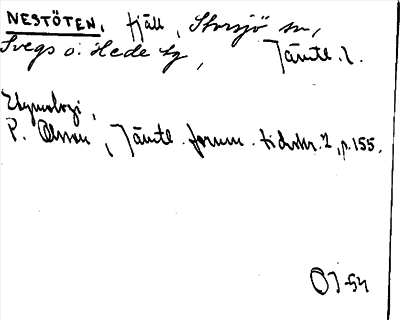 NESTÖTEN, fjäll, Storsjö sn,
Svegs o. Hede tg, Jämtl. l.
Etymologi,
P. Olsson, Jämtl. fornm. tidskr. 2, p. 155.
OJ-54